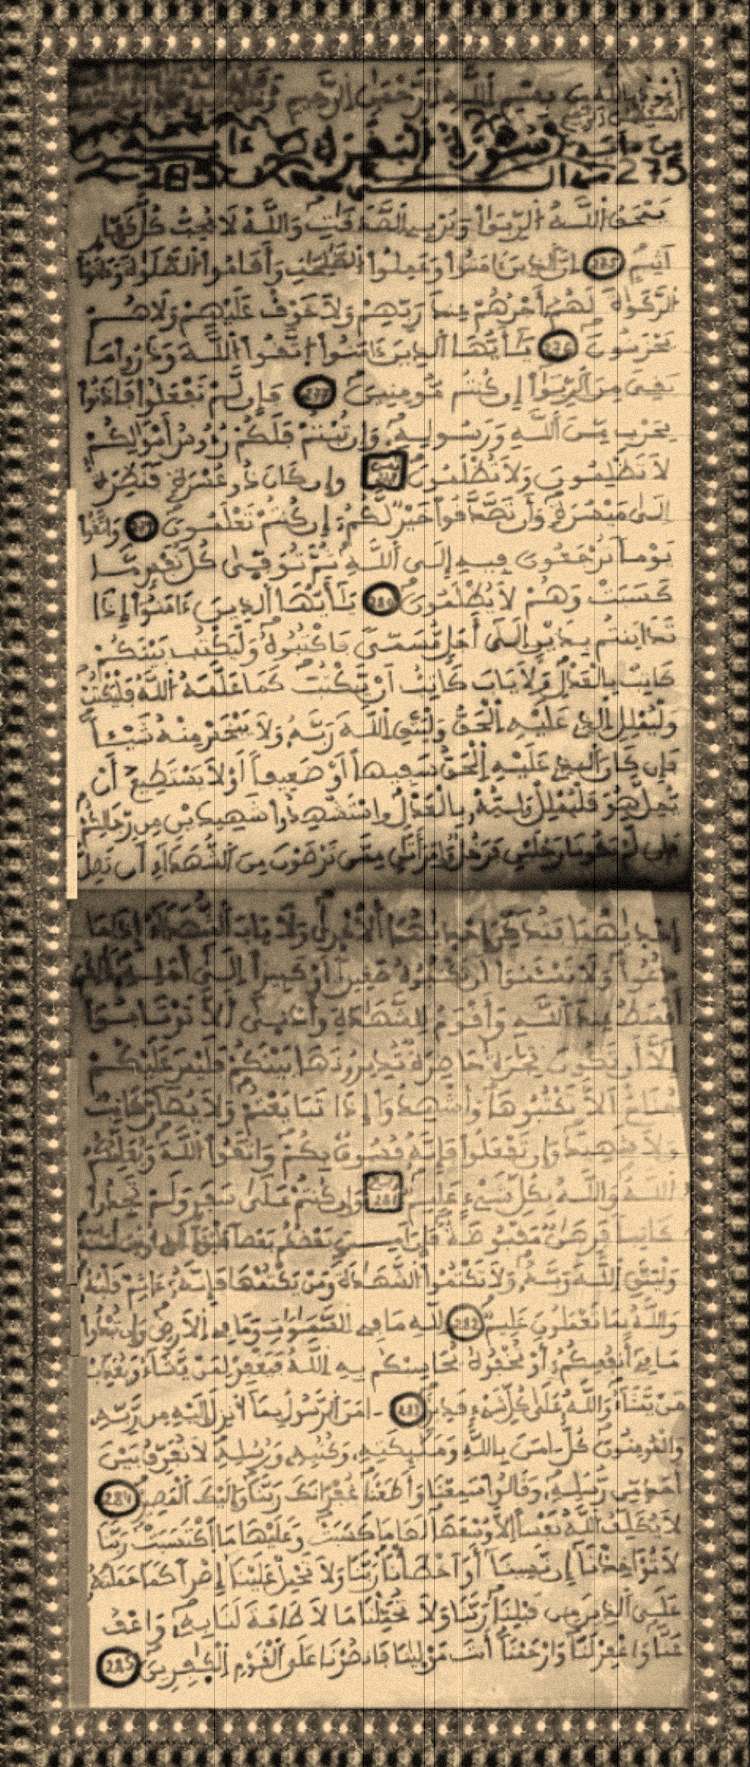 أعوذ بالله من بسم الله الرحمن الرحيم
الشيطان الرجيم
سورة البقرة
275 285
يمحق الله الربوا ويربي الصدقت والله لا يحب كل كفار
اثيم 275 ان الذين ءامنوا وعملوا الصلحت وأقاموا الصلوة وءاتوا
الزكوة لهم أجرهم عند ربهم ولا خوف عليهم ولا هم
يحزنون 276 يأيها الذين ءامنوا اتقوا الله وذروا ما
بقي من الربوا إن كنتم مومنين 277 فإن لم تفعلوا فاذنوا
بحرب من الله ورسوله وإن تبتم فلكم رءوس أموالكم
لا تظلمون ولا تظلمون وإن كان ذو عسرة فنظرة
إلى ميسرة وأن تصدقوا خير لكم إن كنتم تعلمون 279 واتقوا
يوما ترجعون فيه إلى الله ثم توفى كل نفس ما
كسبت وهم لا يظلمون 280 يأيها الذين ءامنوا إذا
تداينتم بدين إلى أجل مسمى فاكتبوه وليكتب بينكم
كاتب بالعدل ولا ياب كاتب أن يكتب كما علمه الله فليكتب
وليملل الذي عليه الحق وليتق الله ربه ولا يبخس منه شيئا
فإن كان الذي عليه الحق سفيها أو ضعيفا أو لا يستطيع أن
يمل هو فليملل وليه بالعدل واستشهدوا شهيدين من رجالكم
فإن لم يكونا رجلين فرجل وامرأتن ممن ترضون من الشهداء ان تضل
إحديهما فتذكر إحديهما الأخرى ولا ياب الشهداء إذا ما
دعوا ولا تسئموا أن تكتبوه صغيرا أو كبيرا إلى أجله ذلكم
أقسط عند الله وأقوم للشهدة وأدنى ألا ترتابوا
إلا أن تكون تجرة حاضرة تديرونها بينكم فليس عليكم
جناح ألا تكتبوها وأشهدوا إذا تبايعتم ولا يضار كاتب
ولا شهيد وإن تفعلوا فإنه فسوق بكم واتقوا الله ويعلمكم
الله والله بكل شيء عليم 281 وإن كنتم على سفر ولم تجدوا
كاتبا فرهن مقبوضة فإن امن بعضكم بعضا فليؤد الذي اوتمن أمنته
وليتق الله ربه ولا تكتموا الشهدة ومن يكتمها فإنه ءاثم قلبه
والله بما تعملون عليم 282 لله ما في السموت وما في الارض وإن تبدوا
ما في أنفسكم أو تخفوه يحاسبكم به الله فيغفر لمن يشاء ويعذب
من يشاء والله على كل شيء قدير 283 امن الرسول بما أنزل إليه من ربه
والمومنون كل امن بالله وملئكته وكتبه ورسله لا نفرق بين
أحد من رسله وقالوا سمعنا وأطعنا غفرانك ربنا وإليك المصير 284
لا يكلف الله نفسا إلا وسعها لها ما كسبت وعليها ما اكتسبت ربنا
لا تؤاخذنا إن نسينا أو أخطأنا ربنا ولا تحمل علينا إصرا كما حملته
على الذين من قبلنا ربنا ولا تحملنا ما لا طاقة لنا به واعف
عنا واغفر لنا وارحمنا أنت مولينا فانصرنا على القوم الكفرين 285